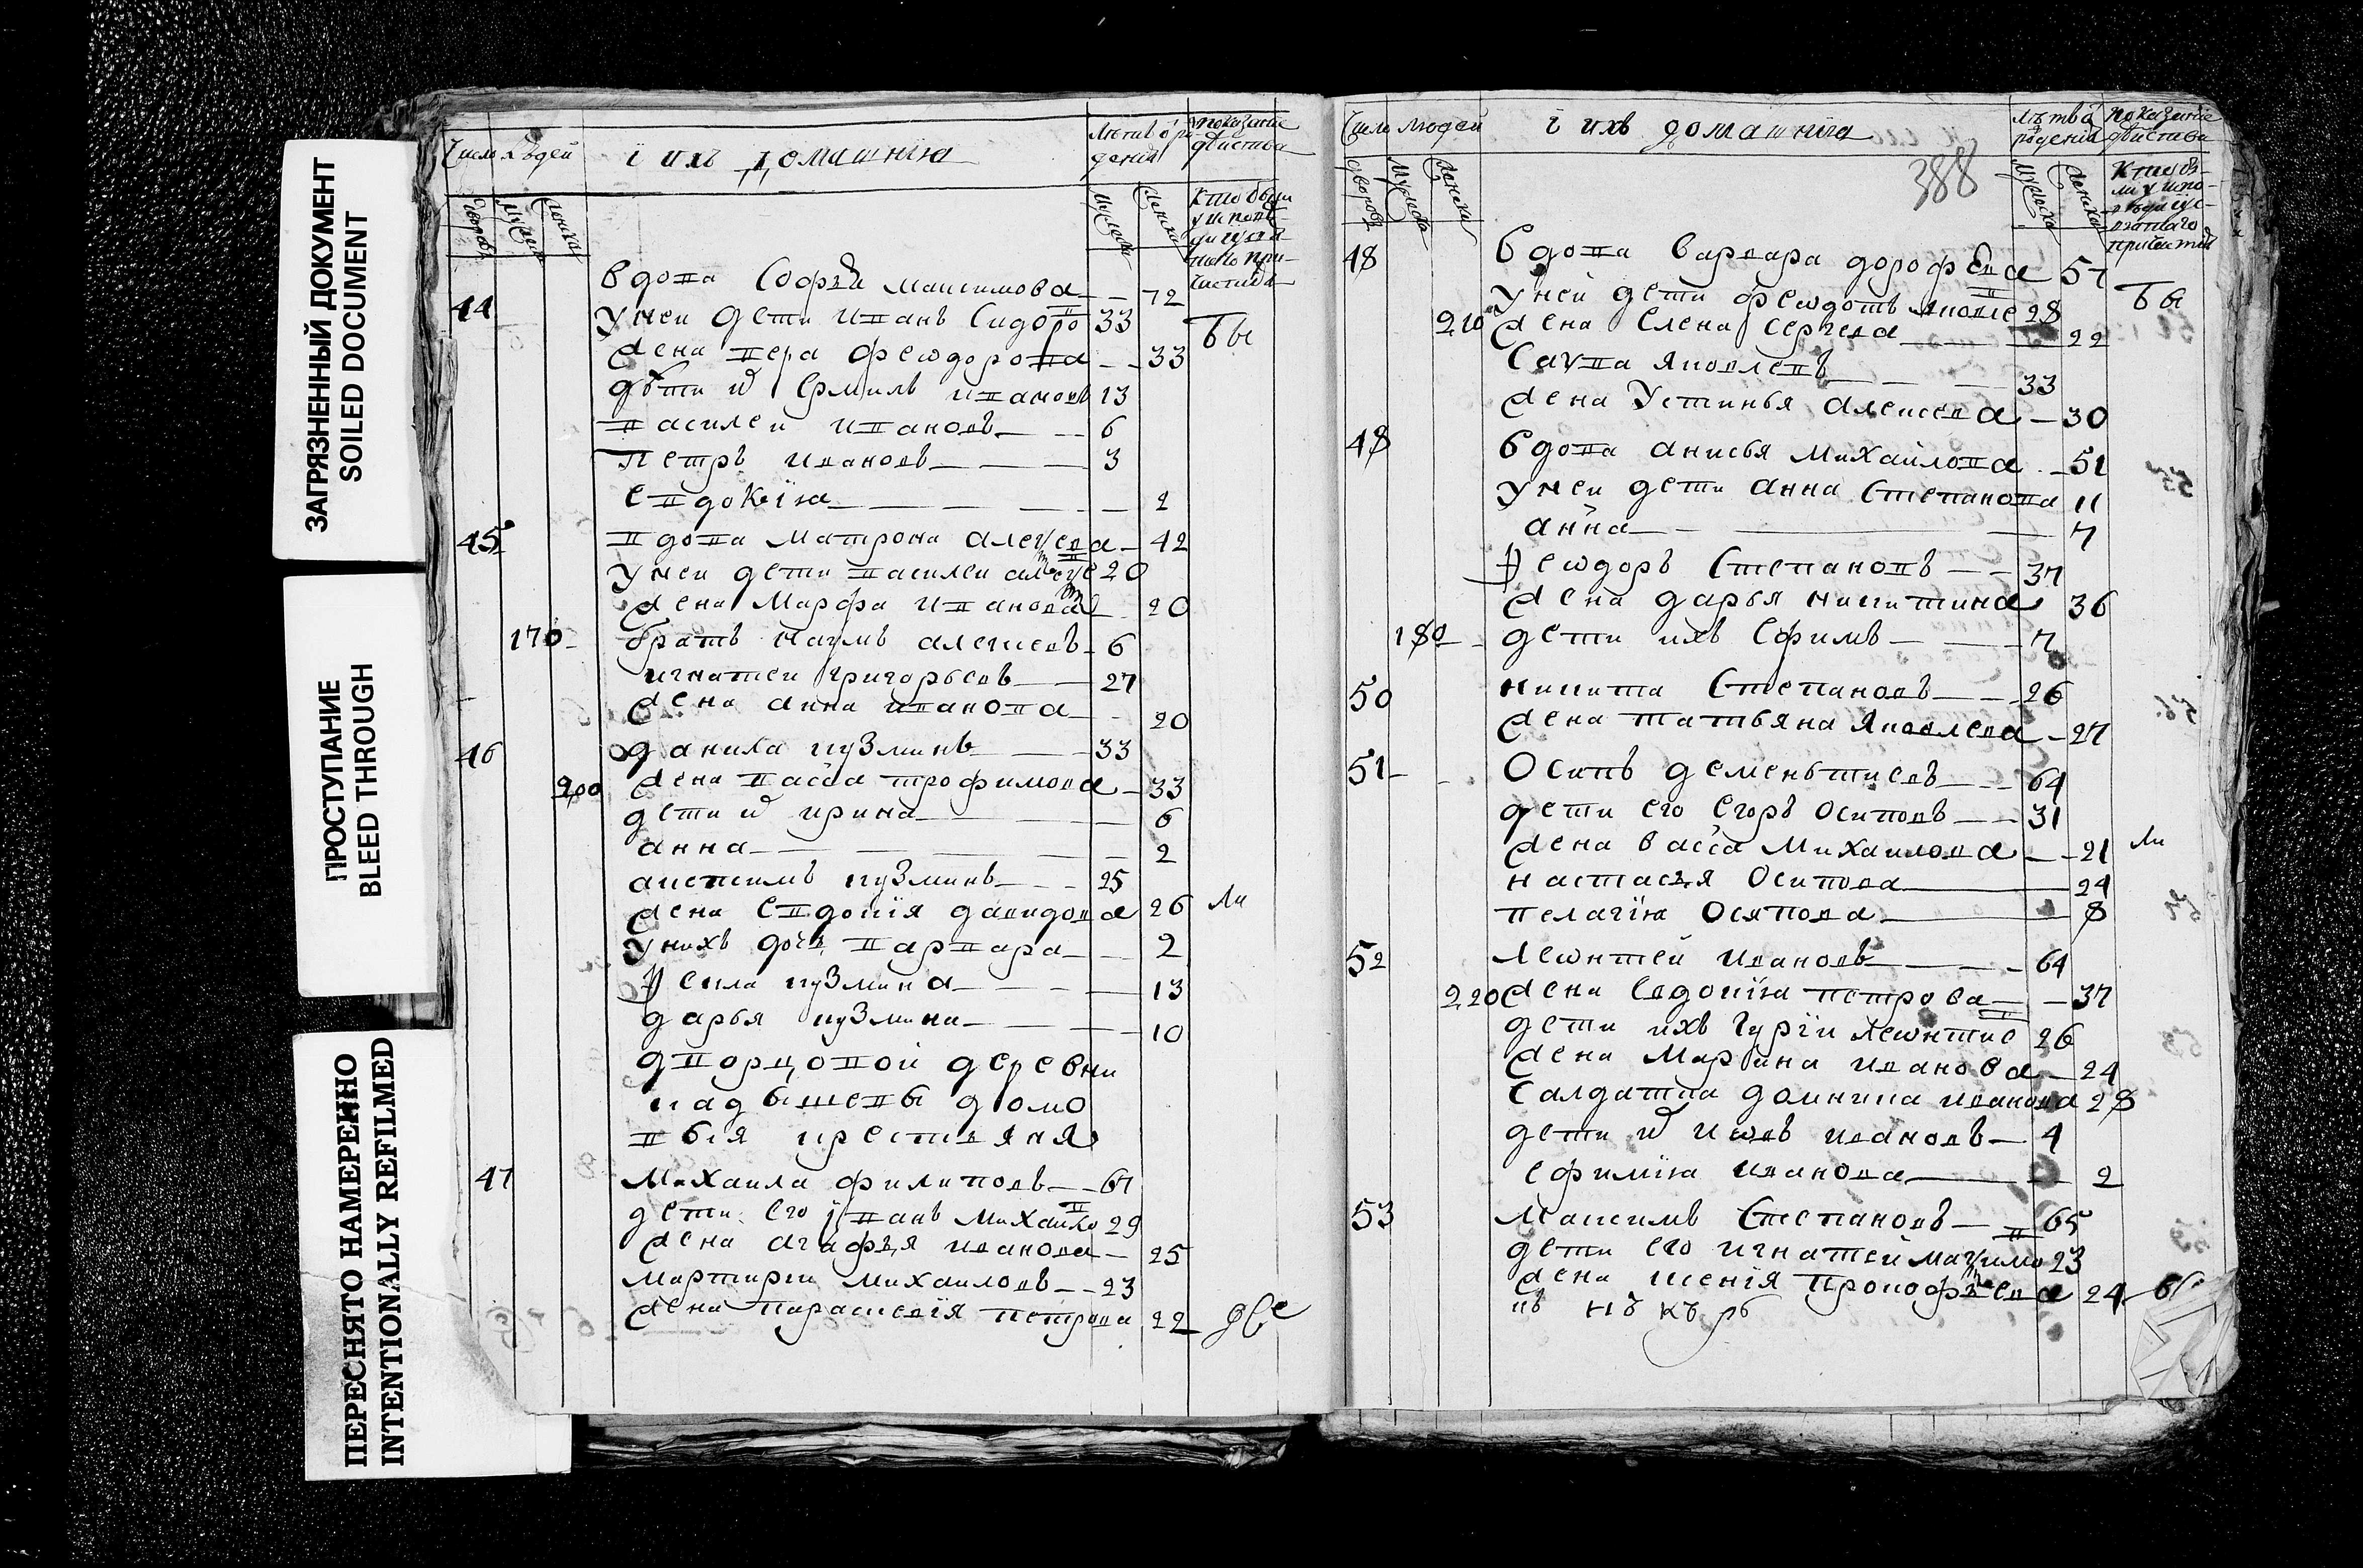 ЗАГРЯЗНЕННЫЙ ДОКУМЕНТ
SOILED DOCUMENT
ПРОСТУПАНИЕ
BLEED THROUGH
ПЕРЕСНЯТО НАМЕРЕННО
INTENTIONALLY REFILMED
Число людей і ихъ домашнїя
вдова Софья Максимова 72
44 У неи дети Иванъ Сидоро 33 бы
жена Вера Феѡдорова 33
дѣти Ермилъ Ивановъ 13
Василеи Ивановъ 6
Петръ Ивановъ 3
Евдокїя 2
45 вдова Матрона Алексева 42
У неи дети Василеи Алексе 20
жена Марфа Иванова 20
170 братъ Наумъ Алексеевъ 6
Игнатеи Григорьевъ 27
жена Анна Иванова 20
46 Данила Кузминъ 33
200 жена Васса Трофимова 33
дети Ирина 6
Анна 2
Кузминъ 25
жена Евдокія Давидова 26 ли
У нихъ дочь Варвара 2
Кузмина 13
Дарья Кузмина 10
дворцовой деревни
крестьяня
47 Михаила Филиповъ 67
дети его Іванъ Михаило 29
жена Агафья Иванова 25
Мартирїи Михаиловъ 23
жена Параскевїя Петрова 22 две
Число людей і ихъ домашнїя
388
48 вдова Варвара Дорофеева 57
У неи дети Феѡдотъ Яковле 28 бы
210 жена Елена Сергеева 22
Савва Яковлевъ 33
жена Устинья Алексеева 30
49 вдова Анисья Михаилова 51
У неи дети Анна Степанова 11
Анна 7
Феѡдоръ Степановъ 37
жена Дарья Никитина 36
180 дети ихъ Ефимъ 7
50 Никита Степановъ 26
жена Татьяна Яковлева 27
51 Осипъ Дементиевъ 64
дети его Егоръ Осиповъ 31
жена Васса Михаилова 21 ли
Настасья Осипова 24
Пелагїя Осипова 8
52 Леѡнтей Ивановъ 64
220 жена Евдокїя Петрова 37
дети ихъ Гурїи Леѡнтие 26
жена Марина Иванова 24
Салдатка Домника Иванова 28
дети Иѡвъ Ивановъ 4
Ефимїя Иванова 2
53 Максимъ Степановъ 65
дети его Игнатей Максимо 23
жена Ксенїя Прокофьева 24